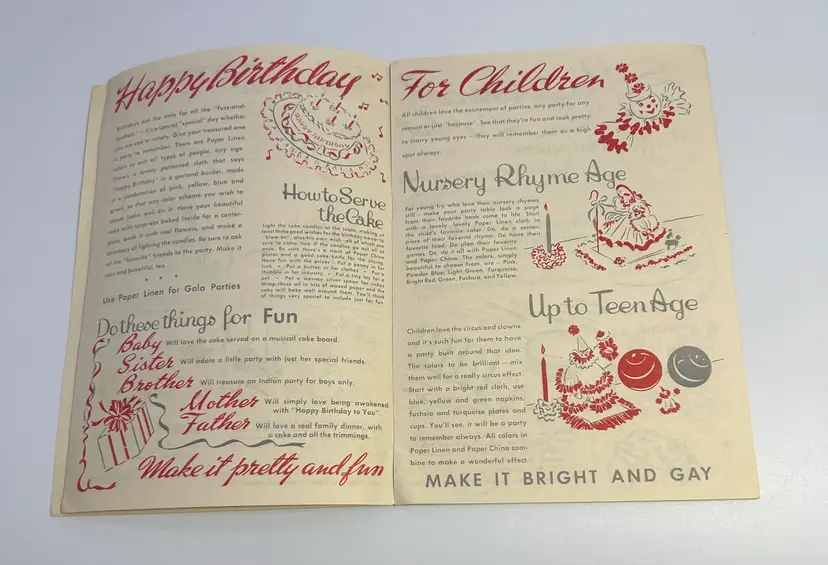 Happy Birthday
Birthdays are the time for all the "fuss-and-
feathers" — it's a special "special" day whether
you are one or ninety. Give your treasured one
a party to remember. There are Paper Linen
colors to suit all types of people, any age.
There's a lovely patterned cloth that says
"Happy Birthday" in a garland border, made
in a combination of pink, yellow, blue and
green, so that any color scheme you wish to
street looks well on it. Have your beautiful
cake with surprises baked inside for a center-
piece, bank it with real flowers, and make a
ceremony of lighting the candles. Be sure to ask
all the "favorite" friends to the party. Make it
easy and beautiful, too.
Use Paper Linen for Gala Parties
HAPPY BIRTHDAY
How to Serve
the Cake
Light the cake candles at the table, making at
least three good wishes for the birthday owner to
"blow-on", plus his own wish — all of which are
sure to come true if the candles go out all at
once. Be sure there's a stack of Paper China
plates and a good cake-knife for the slicing.
Have fun with the prizes — Put a penny in for
luck • Put a button in for clothes • Put a
thimble in for industry • Put a tiny toy for a
pet • Put a weeney silver spoon for riches
Wrap these all in bits of waxed paper and the
cake will bake well around them. You'll think
of things very special to include just for fun.
Do these things for Fun
Baby Will love the cake served on a musical cake board.
Sister Will adore a little party with just her special friends.
Brother Will treasure an Indian party for boys only.
Mother Will simply love being awakened
with "Happy Birthday to You".
Father Will love a real family dinner, with
a cake and all the trimmings.
Make it pretty and fun
For Children
All children love the excitement of parties, any party for any
reason or just "because". See that they're fun and look pretty
to starry young eyes — they will remember them as a high
spot always.
Nursery Rhyme Age
For young fry who love their nursery rhymes
still — make your party table look a page
from their favorite book come to life. Start
with a lovely, lovely Paper Linen cloth in
the child's favorite color. Do a center-
piece of their favorite rhyme. Do have their
favorite food. Do plan their favorite
games. Do, do it all with Paper Linen
and Paper China. The colors, simply
beautiful to choose from, are — Pink,
Powder Blue, Light Green, Turquoise,
Bright Red, Green, Fuchsia, and Yellow.
Up to Teen Age
Children love the circus and clowns
and it's such fun for them to have
a party built around that idea.
The colors to be brilliant — mix
them well for a really circus effect.
Start with a bright red cloth, use
blue, yellow and green napkins;
fuchsia and turquoise plates and
cups. You'll see, it will be a party
to remember always. All colors in
Paper Linen and Paper China com-
bine to make a wonderful effect.
MAKE IT BRIGHT AND GAY